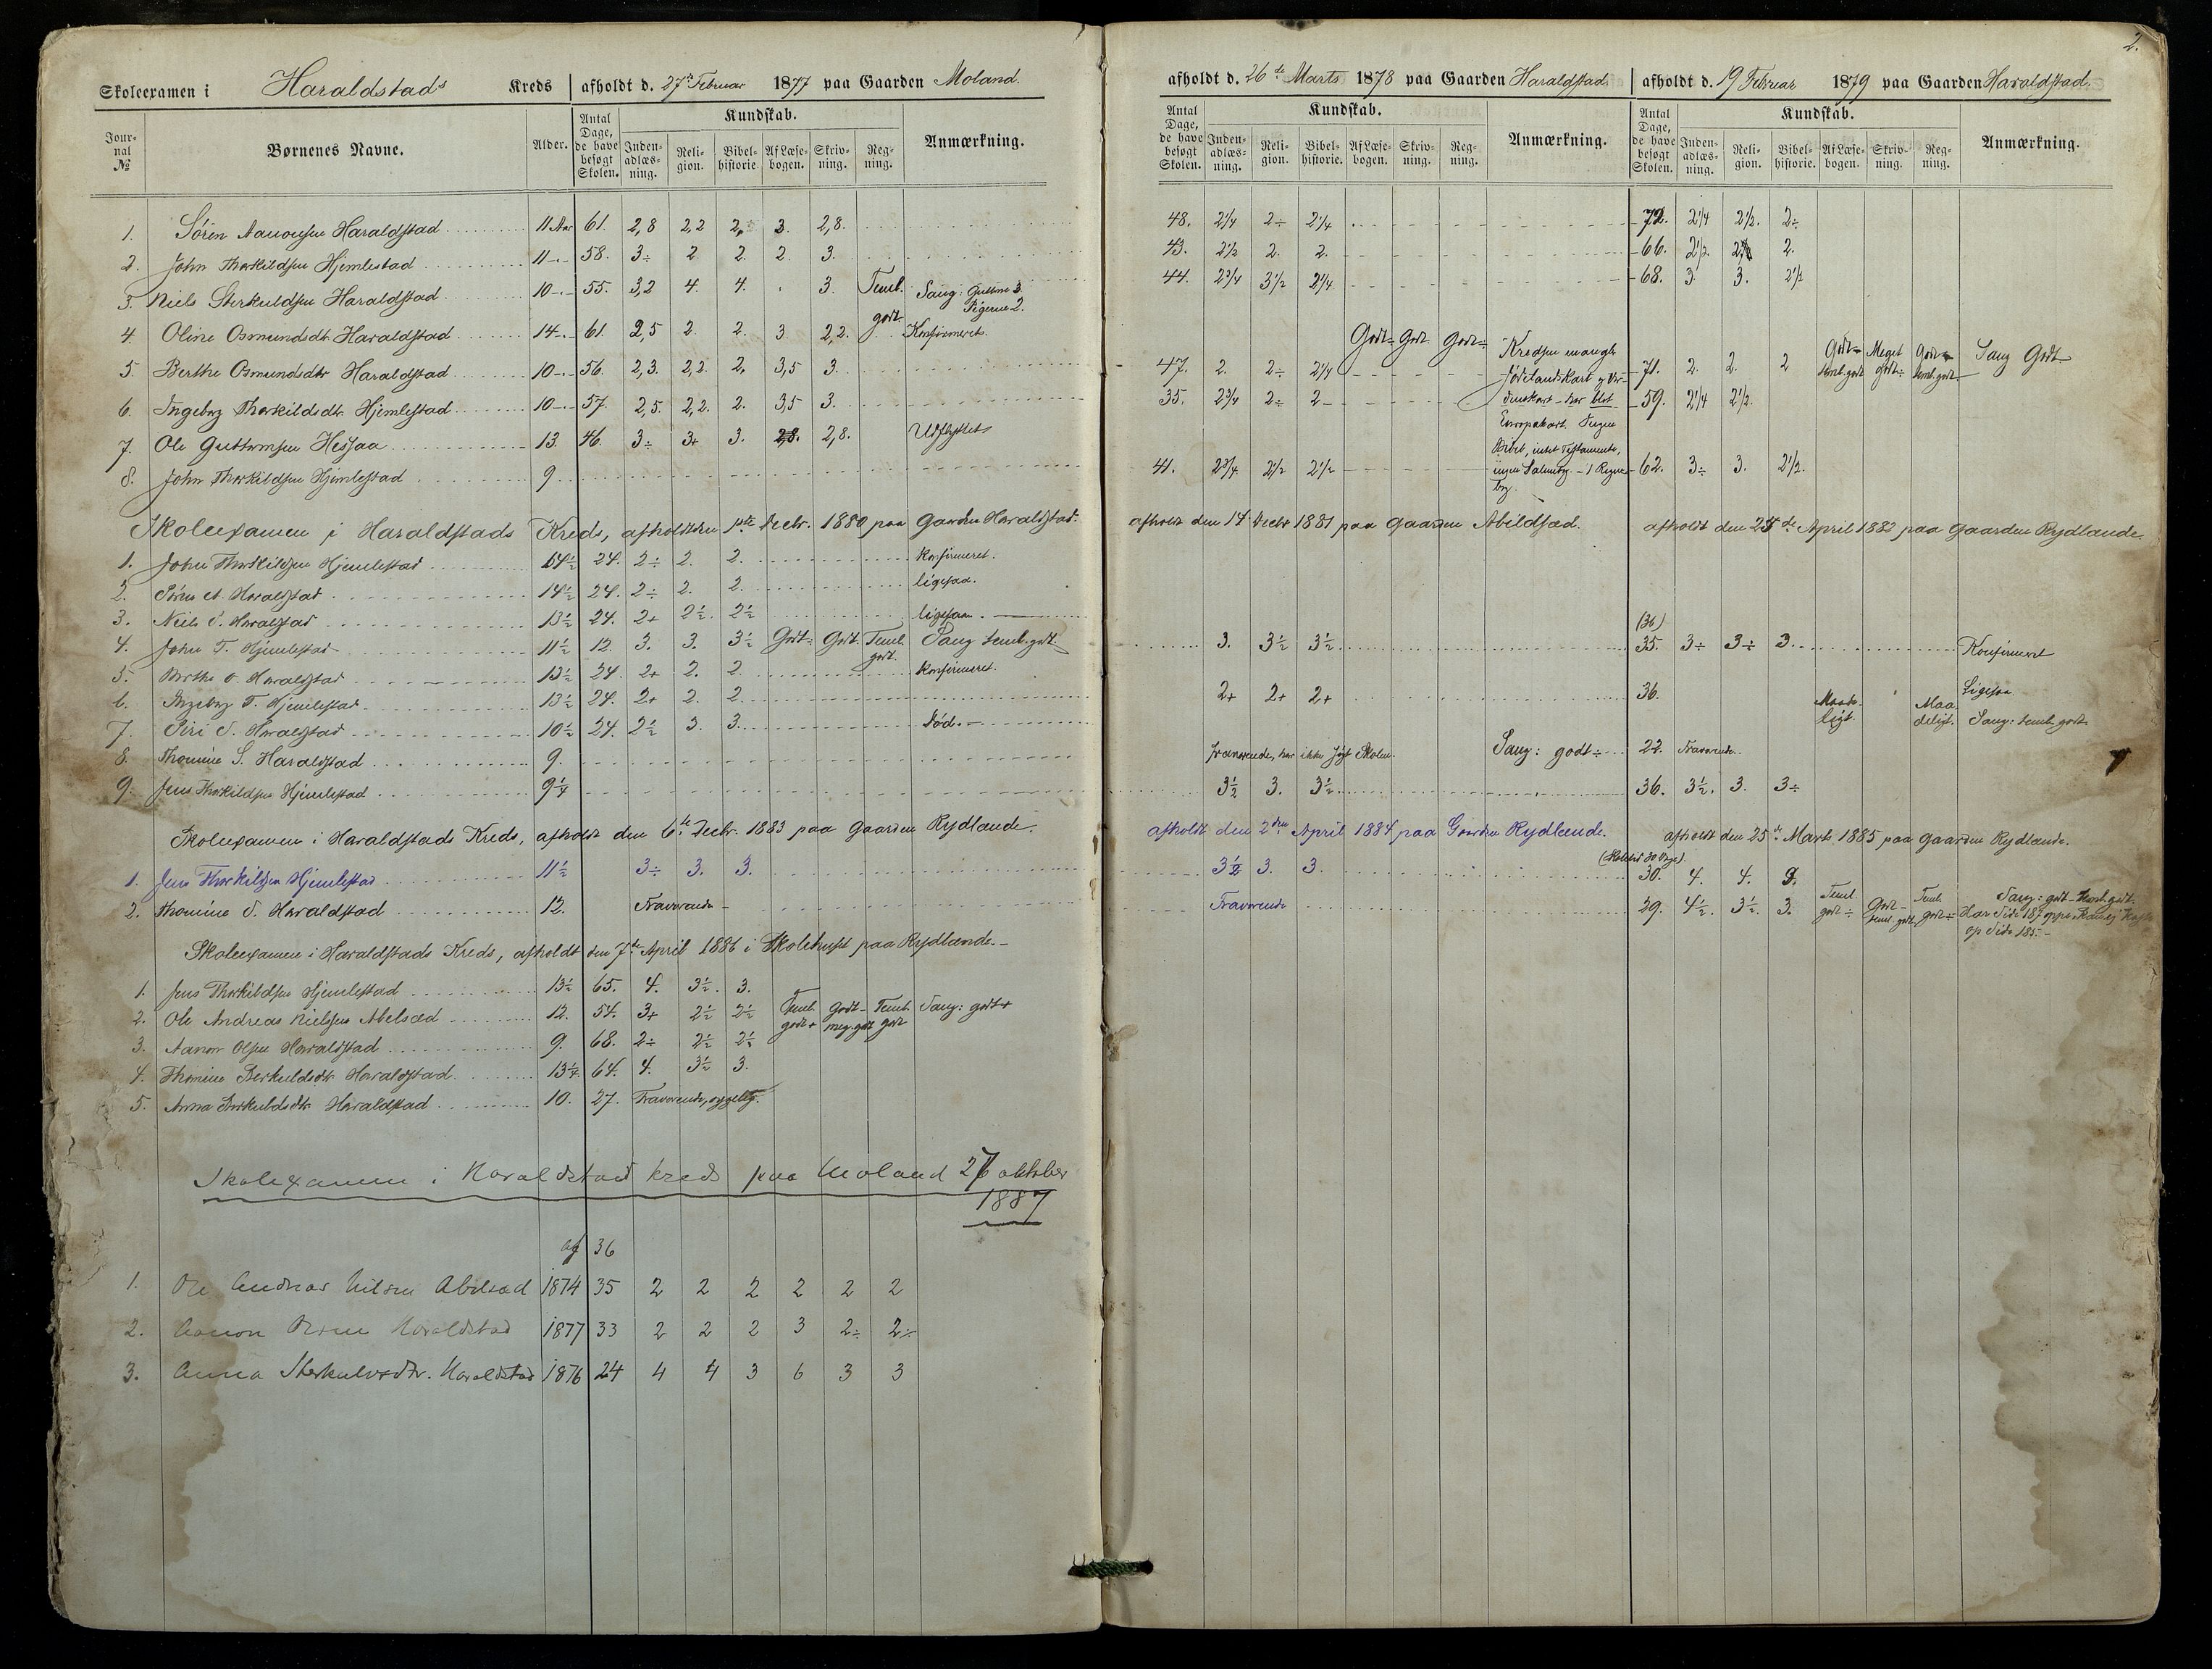 2.
Skoleexamen i Haraldstads Kreds afholdt d. 27de Februar 1877 paa Gaarden Moland.
Journal № Børnenes Navne. Alder. Antal Dage, de have besøgt Skolen. Kundskab. Indenadlæsning. Religion. Bibelhistorie. Af Læsebogen. Skrivning. Regning. Anmærkning.
1. Søren Aanonsen Haraldstad 11 Aar 61. 2,8 2,2 2, 3. 2,8.
2. John Thorkildsen Hjemlestad 11 - 58. 3÷ 2 2. 2 3.
3. Niels Sterkuldsen Haraldstad 10 - 55. 3,2 4. 4. 3. Teml. godt Sang: Guttene 3. Pigerne 2.
4. Oline Osmundsdtr Haraldstad 14 - 61. 2,5 2. 2. 3. 2,2. Konfirmeret.
5. Berthe Osmundsdtr Haraldstad 10 - 56. 2,3. 2,2. 2. 3,5 3.
6. Ingeborg Thorkildsdtr. Hjemlestad 10 - 57. 2,5. 2,2. 2. 3,5 3.
7. Ole Guttormsen Hessaa 13. 46. 3÷ 3+ 3. 2,8. 2,8. Udflyttet
8. John Thorkildsen Hjemlestad 9
Skoleexamen i Haraldstads Kreds, afholdt den 1ste Decbr. 1880 paa Gaarden Haraldstad.
1. John Thorkildsen Hjemlestad 14½ 24. 2÷ 2. 2. konfirmeret.
2. Søren A. Haraldstad 14½ 24. 2÷ 2. 2. ligesaa.
3. Niels S. Haraldstad 13½ 24. 2+ 2½. 2½ ligesaa.
4. John T. Hjemlestad 11½ 12. 3. 3. 3½ Godt÷ Godt Teml. godt. Sang teml. godt
5. Berthe O. Haraldstad 13½ 24. 2+ 2. 2. konfirmeret.
6. Ingeborg T. Hjemlestad 13½ 24. 2+ 2. 2.
7. Siri S. Haraldstad 10½ 24. 2½ 3. 3. Død.
8. Thomine S. Haraldstad 9.
9. Jens Thorkildsen Hjemlestad 9¼
Skoleexamen i Haraldstads Kreds, afholdt den 6te Decbr. 1883 paa Gaarden Rydlande.
1. Jens Thorkildsen Hjemlestad 11½ 3÷ 3. 3.
2. Thomine S. Haraldstad 12. Fraværende -
Skoleexamen i Haraldstads Kreds, afholdt den 7de April 1886 i Skolehuset paa Rydlande.
1. Jens Thorkildsen Hjemlestad 13½ 65. 4. 3½. 3.
2. Ole Andreas Nielsen Abelsæd 12. 54. 3+ 2½ 2½ Teml. godt+ Godt - meg. godt Teml. godt Sang: godt+
3. Aanon Olsen Haraldstad 9. 68. 2÷ 2½ 2½
4. Thomine Sterkuldsdtr Haraldstad 13½ 64. 4. 3½ 3.
5. Anna Sterkuldsdtr Haraldstad 10. 27. Fraværende,
Skolexamen i Haraldstad kreds paa Moland 27 oktober
1887
af 36
1. Ole Andreas Nilsen Abelsæd 1874 35 2 2 2 2 2 2
2. Aanon Olsen Haraldstad 1877 33 2 2 2 3 2÷ 2÷
3. Anna Sterkulvsdtr. Haraldstad 1876 24 4 4 3 6 3 3
afholdt d. 26de Marts 1878 paa Gaarden Haraldstad.
Antal Dage, de have besøgt Skolen. Kundskab. Indenadlæsning. Religion. Bibelhistorie. Af Læsebogen. Skrivning. Regning. Anmærkning.
48. 2¼ 2÷ 2¼
43. 2½ 2. 2.
44. 2¾ 3½ 2¼
Godt÷ Godt Godt÷
47. 2. 2÷ 2¼
35. 2¾ 2÷ 2
41. 2¾ 2½ 2½
Kredsen mangler
Jødeland: Kart og Ver-
denskart - har blot
Europakart. Ingen
Bibel, intet Testamente,
ingen Salmebog - 1 Regne-
bog.
afholdt den 14 Decbr 1881 paa Gaarden Abildsæd.
3. 3½ 3½
2+ 2+ 2+
Fraværende, har ikke søgt Skolen. Sang: godt÷
3½ 3. 3½
afholdt den 2den April 1884 paa Gaarden Rydlande.
3½ 3. 3.
Fraværende
afholdt d. 19 Februar 1879 paa Gaarden Haraldstad.
Antal Dage, de have besøgt Skolen. Kundskab. Indenadlæsning. Religion. Bibelhistorie. Af Læsebogen. Skrivning. Regning. Anmærkning.
72. 2¼ 2½. 2÷
66. 2½. 2½ 2.
68. 3. 3. 2½
71. 2. 2. 2 Godt - teml. godt Meget godt÷ Godt - teml. godt Sang Godt
59. 2¼ 2½.
62. 3÷ 3. 2½.
afholdt den 24de April 1882 paa Gaarden Rydlande
(36)
35. 3÷ 3÷ 3. Konfirmeret
36. Ligesaa
Maadeligt. Maadeligt. Sang: teml. godt
22. Fraværende.
36. 3½. 3. 3÷
afholdt den 25de Marts 1885 paa Gaarden Rydlande.
(Skoletid 30 Dage).
30. 4. 4. 3.
29. 4½. 3½. 3. Teml. godt÷ Godt - teml. godt Teml. godt÷ Sang: godt - teml. godt.